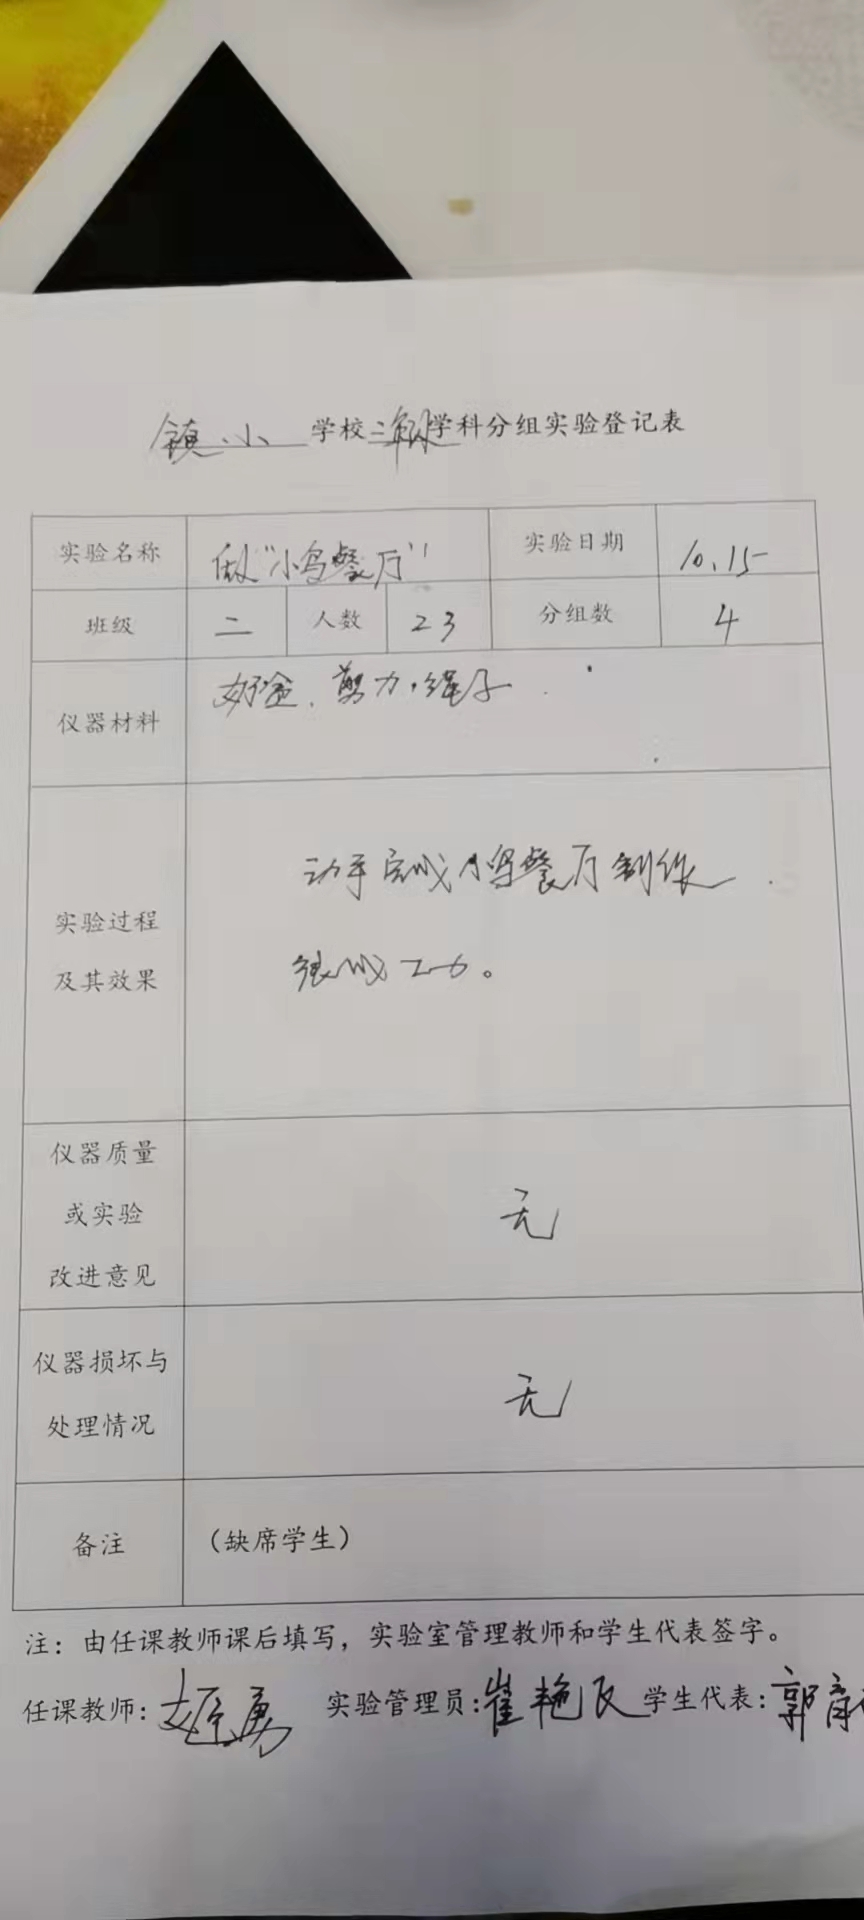 镇小 学校 学科分组实验登记表
实验名称 做"小鸟餐厅" 实验日期 10.15
班级 二 人数 23 分组数 4
仪器材料 剪刀、绳子
动手完成小鸟餐厅制作
实验过程
及其效果
很成功。
仪器质量
或实验
改进意见
无
仪器损坏与
处理情况
无
备注 (缺席学生)
注：由任课教师课后填写，实验室管理教师和学生代表签字。
任课教师: 勇 实验管理员: 崔艳 学生代表: 郭